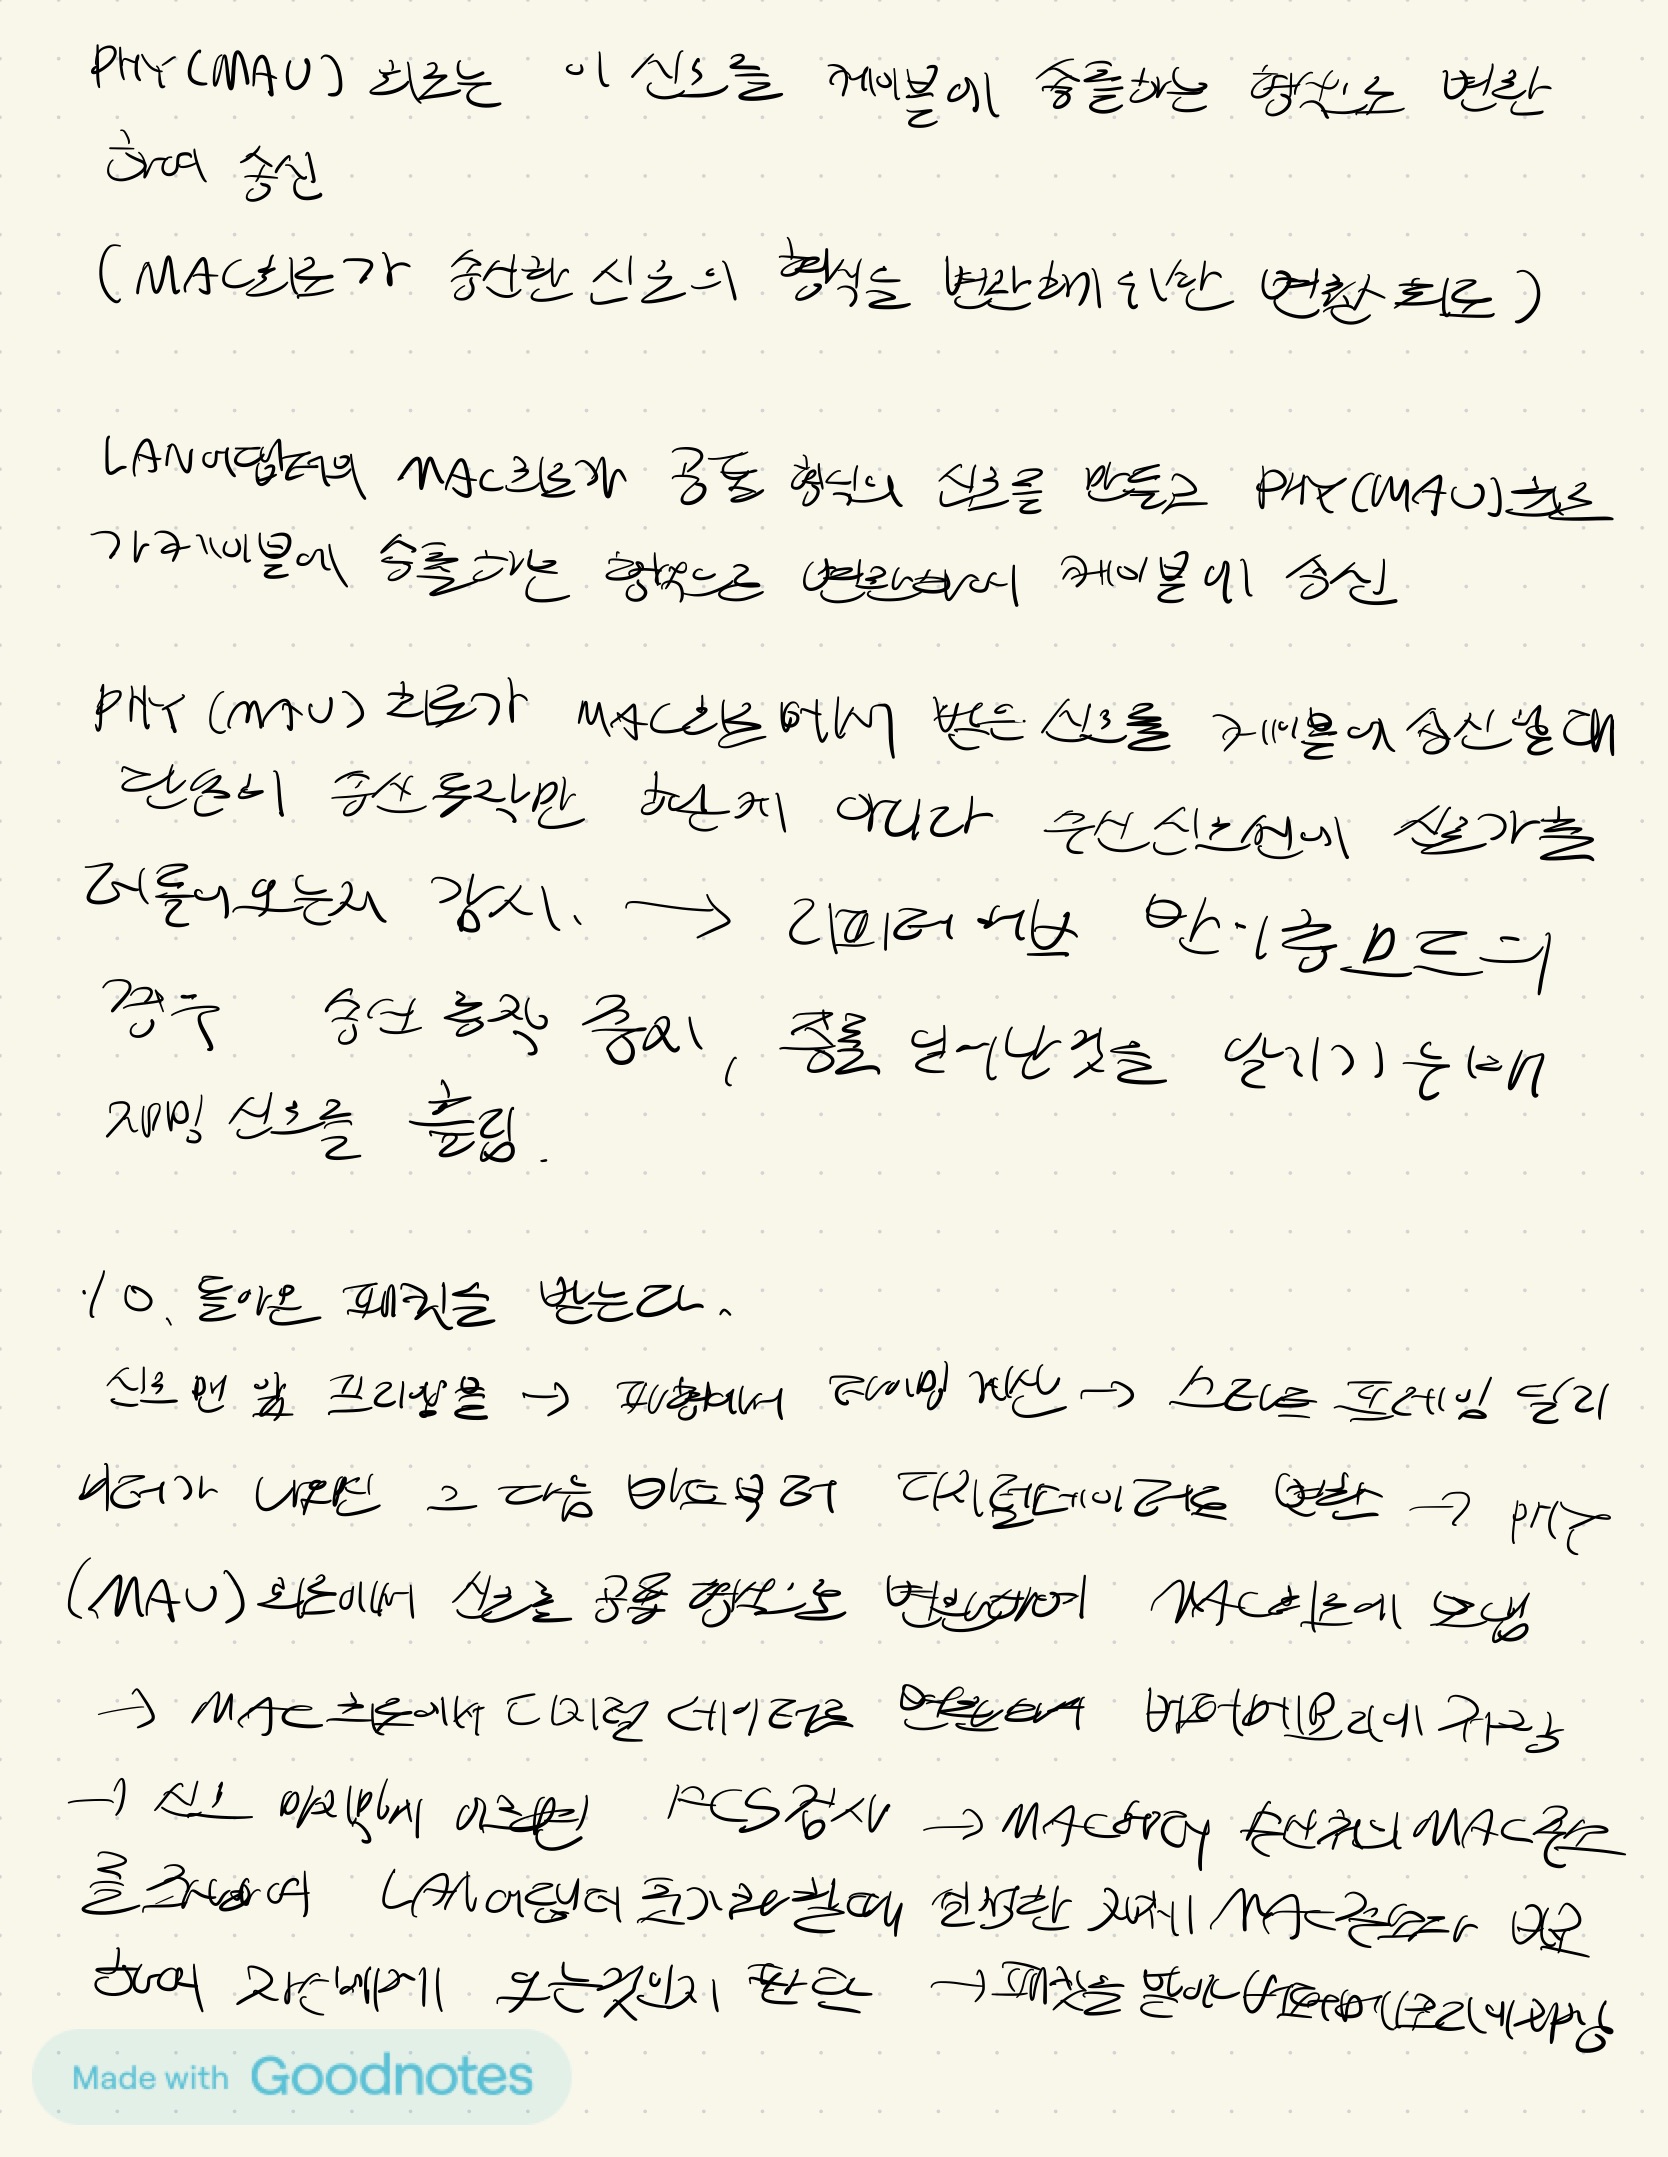 PHY(MAU) 회로는 이 신호를 케이블에 송출하는 형식으로 변환
하여 송신
(MAC회로가 송신한 신호의 형식을 변환해 위한 변환 회로)
LAN어댑터의 MAC회로가 공통 형식의 신호를 만들고 PHY(MAU)회로
가 케이블에 송출하는 형식으로 변환하여 케이블에 송신
PHY (MAU) 회로가 MAC회로에서 받은 신호를 케이블에 송신할 때
단순히 송신 동작만 하는게 아니라 수신 신호선에서 신호가 흘
러들어오는지 감시. → 리피터 허브 반이중모드의
경우 송신 동작 중에, 충돌 일어난것을 알리기 위해
재밍 신호를 흘림.
10. 돌아온 패킷을 받는다.
신호 맨 앞 프리앰블 → 파형에서 타이밍 계산 → 스타트 프레임 딜리
미터가 나오면 그 다음 비트부터 디지털데이터로 변환 → PHY
(MAU)회로에서 신호를 공통 형식으로 변환하여 MAC회로에 보냄
→ MAC 회로에서 디지털 데이터로 변환하여 버퍼메모리에 저장
→ 신호 마지막에 이르면 FCS검사 → MAC헤더 수신처의 MAC주소
를 조사하여 LAN어댑터 초기화할때 설정한 자체 MAC주소와 비교
하여 자신에게 오는것인지 판단 → 패킷을 받아 버퍼메모리에 저장
Made with Goodnotes